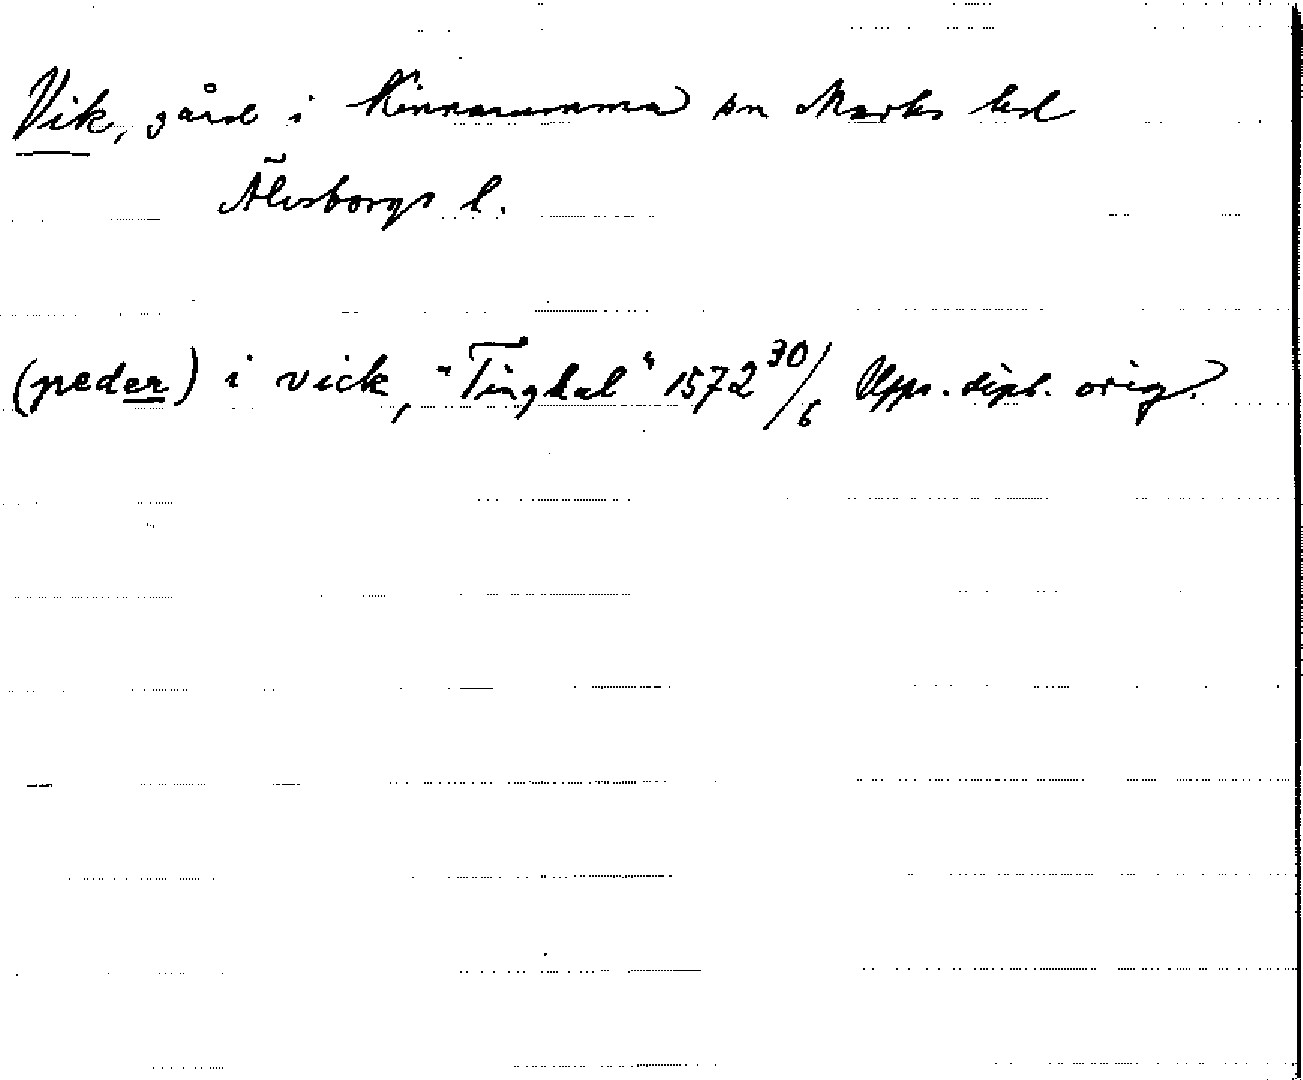 Vik, gård i Kinnarumma sn Marks hd
Älvsborgs l.
(peder) i vick, "Tinghal" 1572 30/6 Upps. dipl. orig.